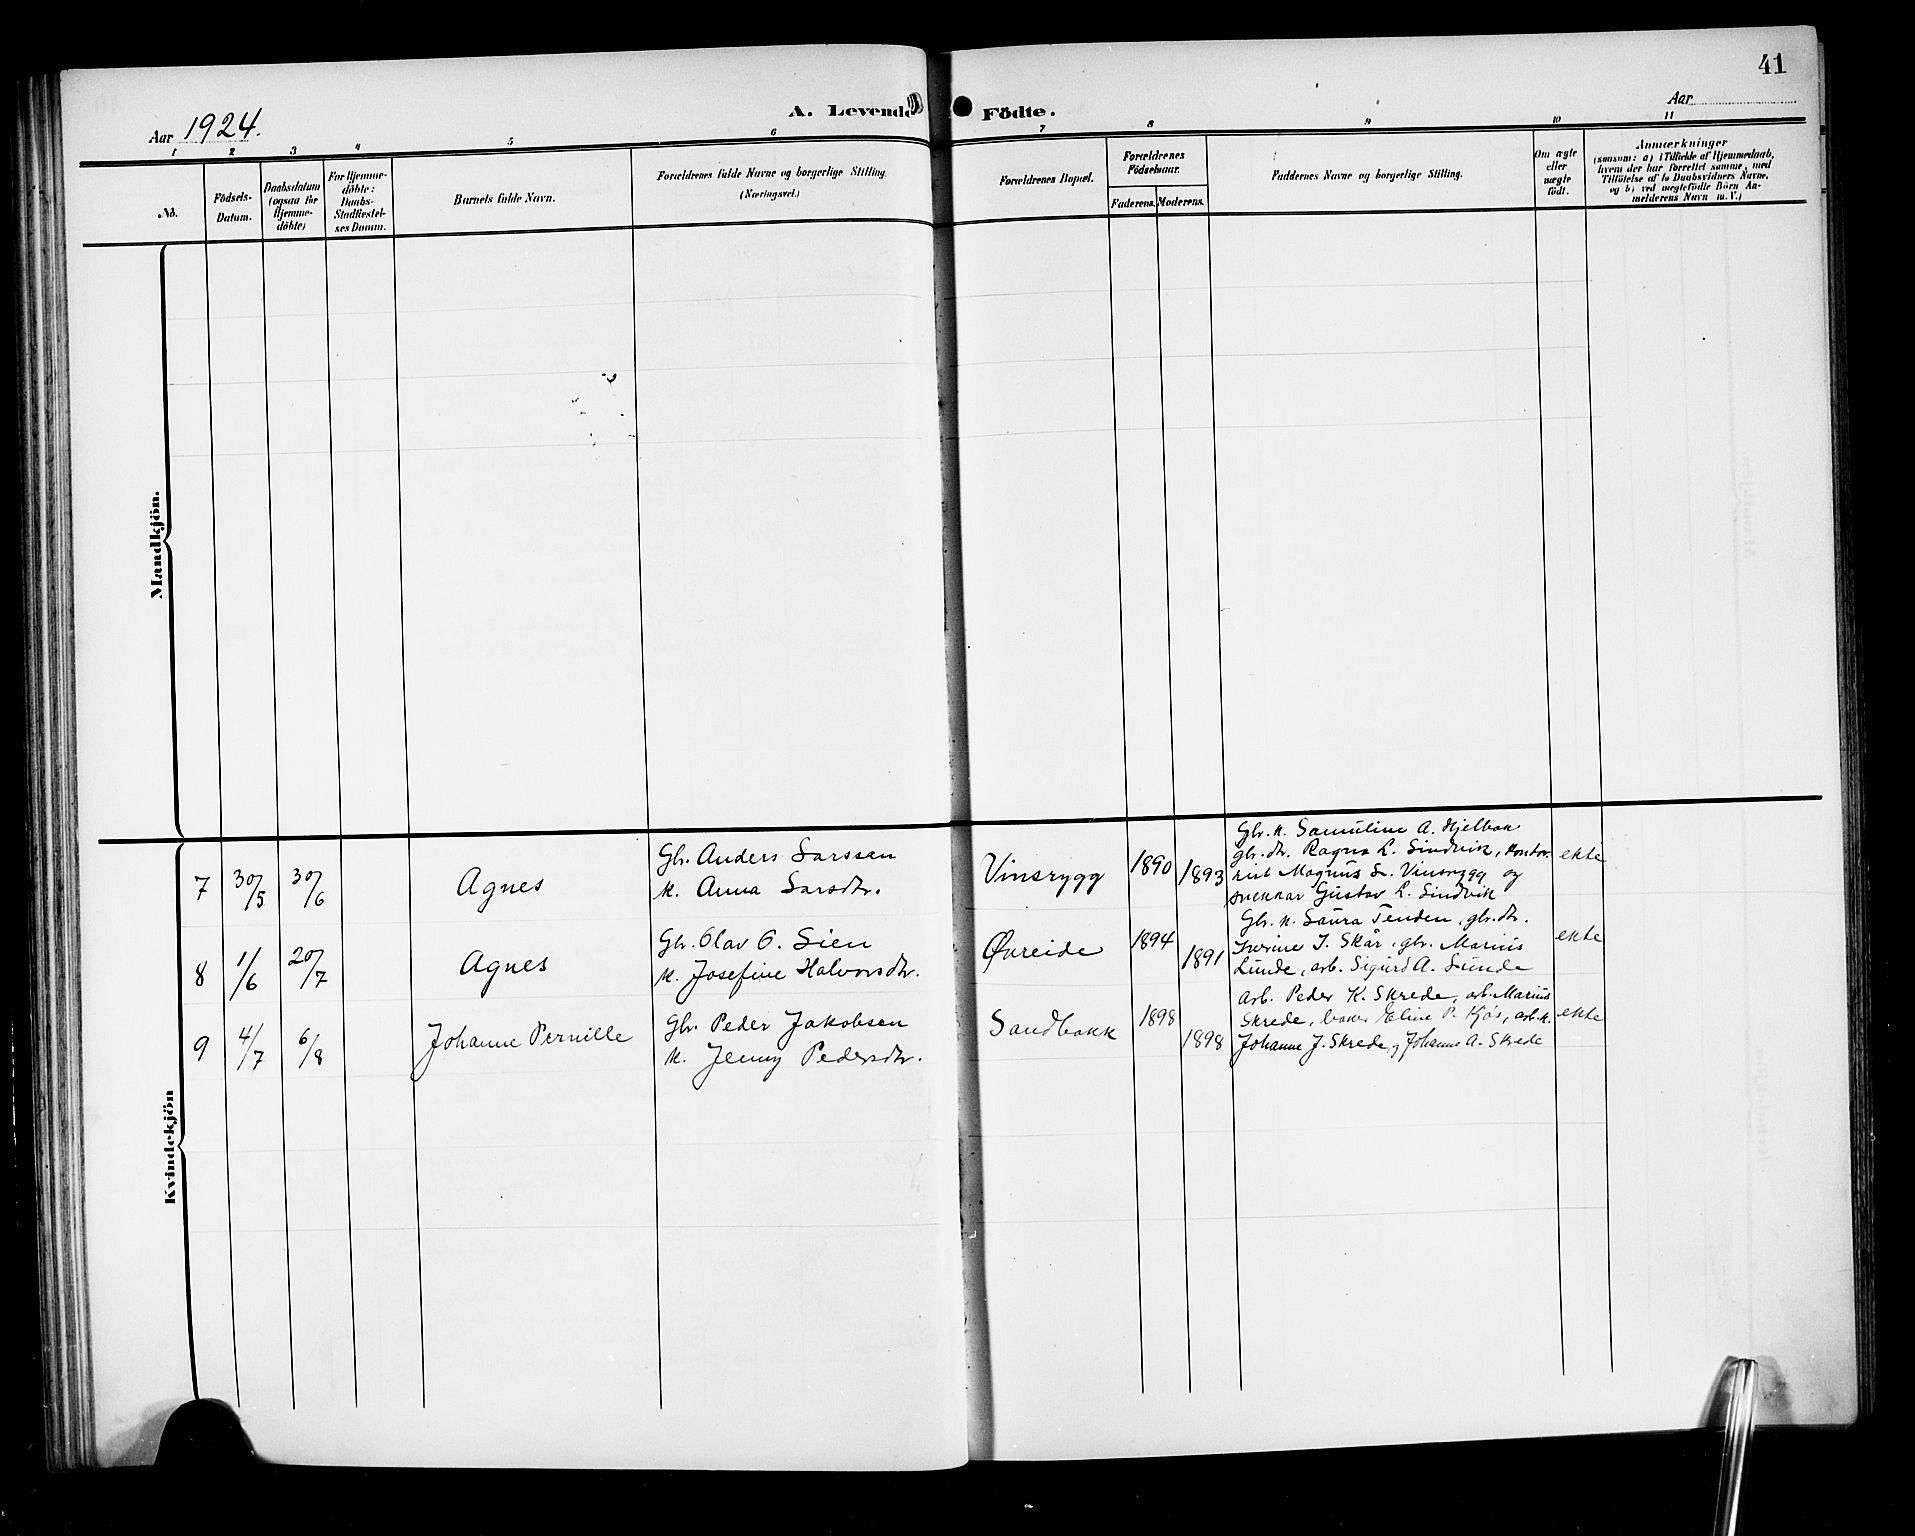 41
Aar 1924.
A. Levende Födte.
Aar
1 2 3 4 5 6 7 8 9 10 11
No.
Födsels-
Datum.
Daabsdatum
(ogsaa for
Hjemme-
döbte)
For Hjemme-
döbte:
Daabs-
Stadfæstel-
ses Datum.
Barnets fulde Navn.
Forældrenes fulde Navne og borgerlige Stilling.
(Næringsvei.)
Forældrenes Bopæl.
Forældrenes
Födselsaar.
Faderens. Moderens.
Faddernes Navne og borgerlige Stilling.
Om ægte
eller
uægte
födt.
Anmærkninger
(saasom: a) i Tilfælde af Hjemmedaab,
hvem der har forrettet samme, med
Tilföielse af to Daabsvidners Navne,
og b) ved uægtefödte Börn An-
melderens Navn m. V.)
Mandkjön.
Kvindekjön
7 30/5 30/6 Agnes
Gbr. Anders Larssen
k. Anna Larsdtr.
Vinsrygg 1890 1893
Gbr. k. Samuline A. Hjelbak
gbr. dtr. Ragna L. Sindvik, kontor-
rist Magnus L. Vinsrygg og
snekkar Gustav L. Sindvik
ekte
8 1/6 20/7 Agnes
Gbr. Olav O. Sien
k. Josefine Halvorsdtr.
Øvreide 1894 1891
Gbr. k. Laura Tenden, gbr. dtr.
J. Skår, gbr. Marius
Lunde, arb. Sigurd A. Lunde
ekte
9 4/7 6/8 Johanne Pernille
Gbr. Peder Jakobsen
k. Jenny Pedersdtr.
Sandbakk 1898 1898
arb. Peder K. Skrede, arb. Marius
Skrede, Eline P. Kjøs, arb. k.
Johanne J. Skrede, Johanns A. Skrede
ekte